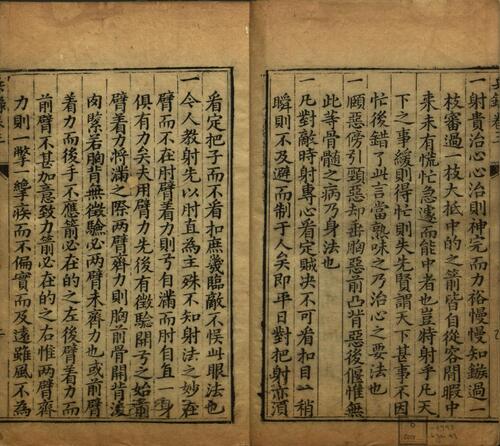 一射貴治心心治則神完而力裕慢慢知鏃過一
枝審過一枝大抵中的之箭皆自從容閒暇中
來未有慌忙急遽而能中者也豈特射乎凡天
下之事緩則得忙則失先賢謂天下甚事不因
忙後錯了此言當熟味之乃治心之要法也
一頤惡傍引頸惡却垂胸惡前凸背惡後偃惟無
此等骨髓之病乃身法也
一凡對敵時射專心看定賊決不可看扣目一稍
瞬則不及避而制于人矣即平日對把射亦須
看定把子而不看扣庶幾臨敵不悞此眼法也
一今人教射先以肘直為主殊不知射法之妙在
臂而不在肘臂着力則弓自滿而肘自直一身
俱有力矣夫用臂力先後有徵驗開弓之始前
臂着力將滿之際兩臂齊力則胸前骨開背後
肉緊若胸背無徵驗必兩臂未齊力也或前臂
着力而後手不應箭必在的之左後臂着力而
前臂不甚加意致力箭必在的之右惟兩臂齊
力則一擊一簇而不偏實而及遠雖風不為